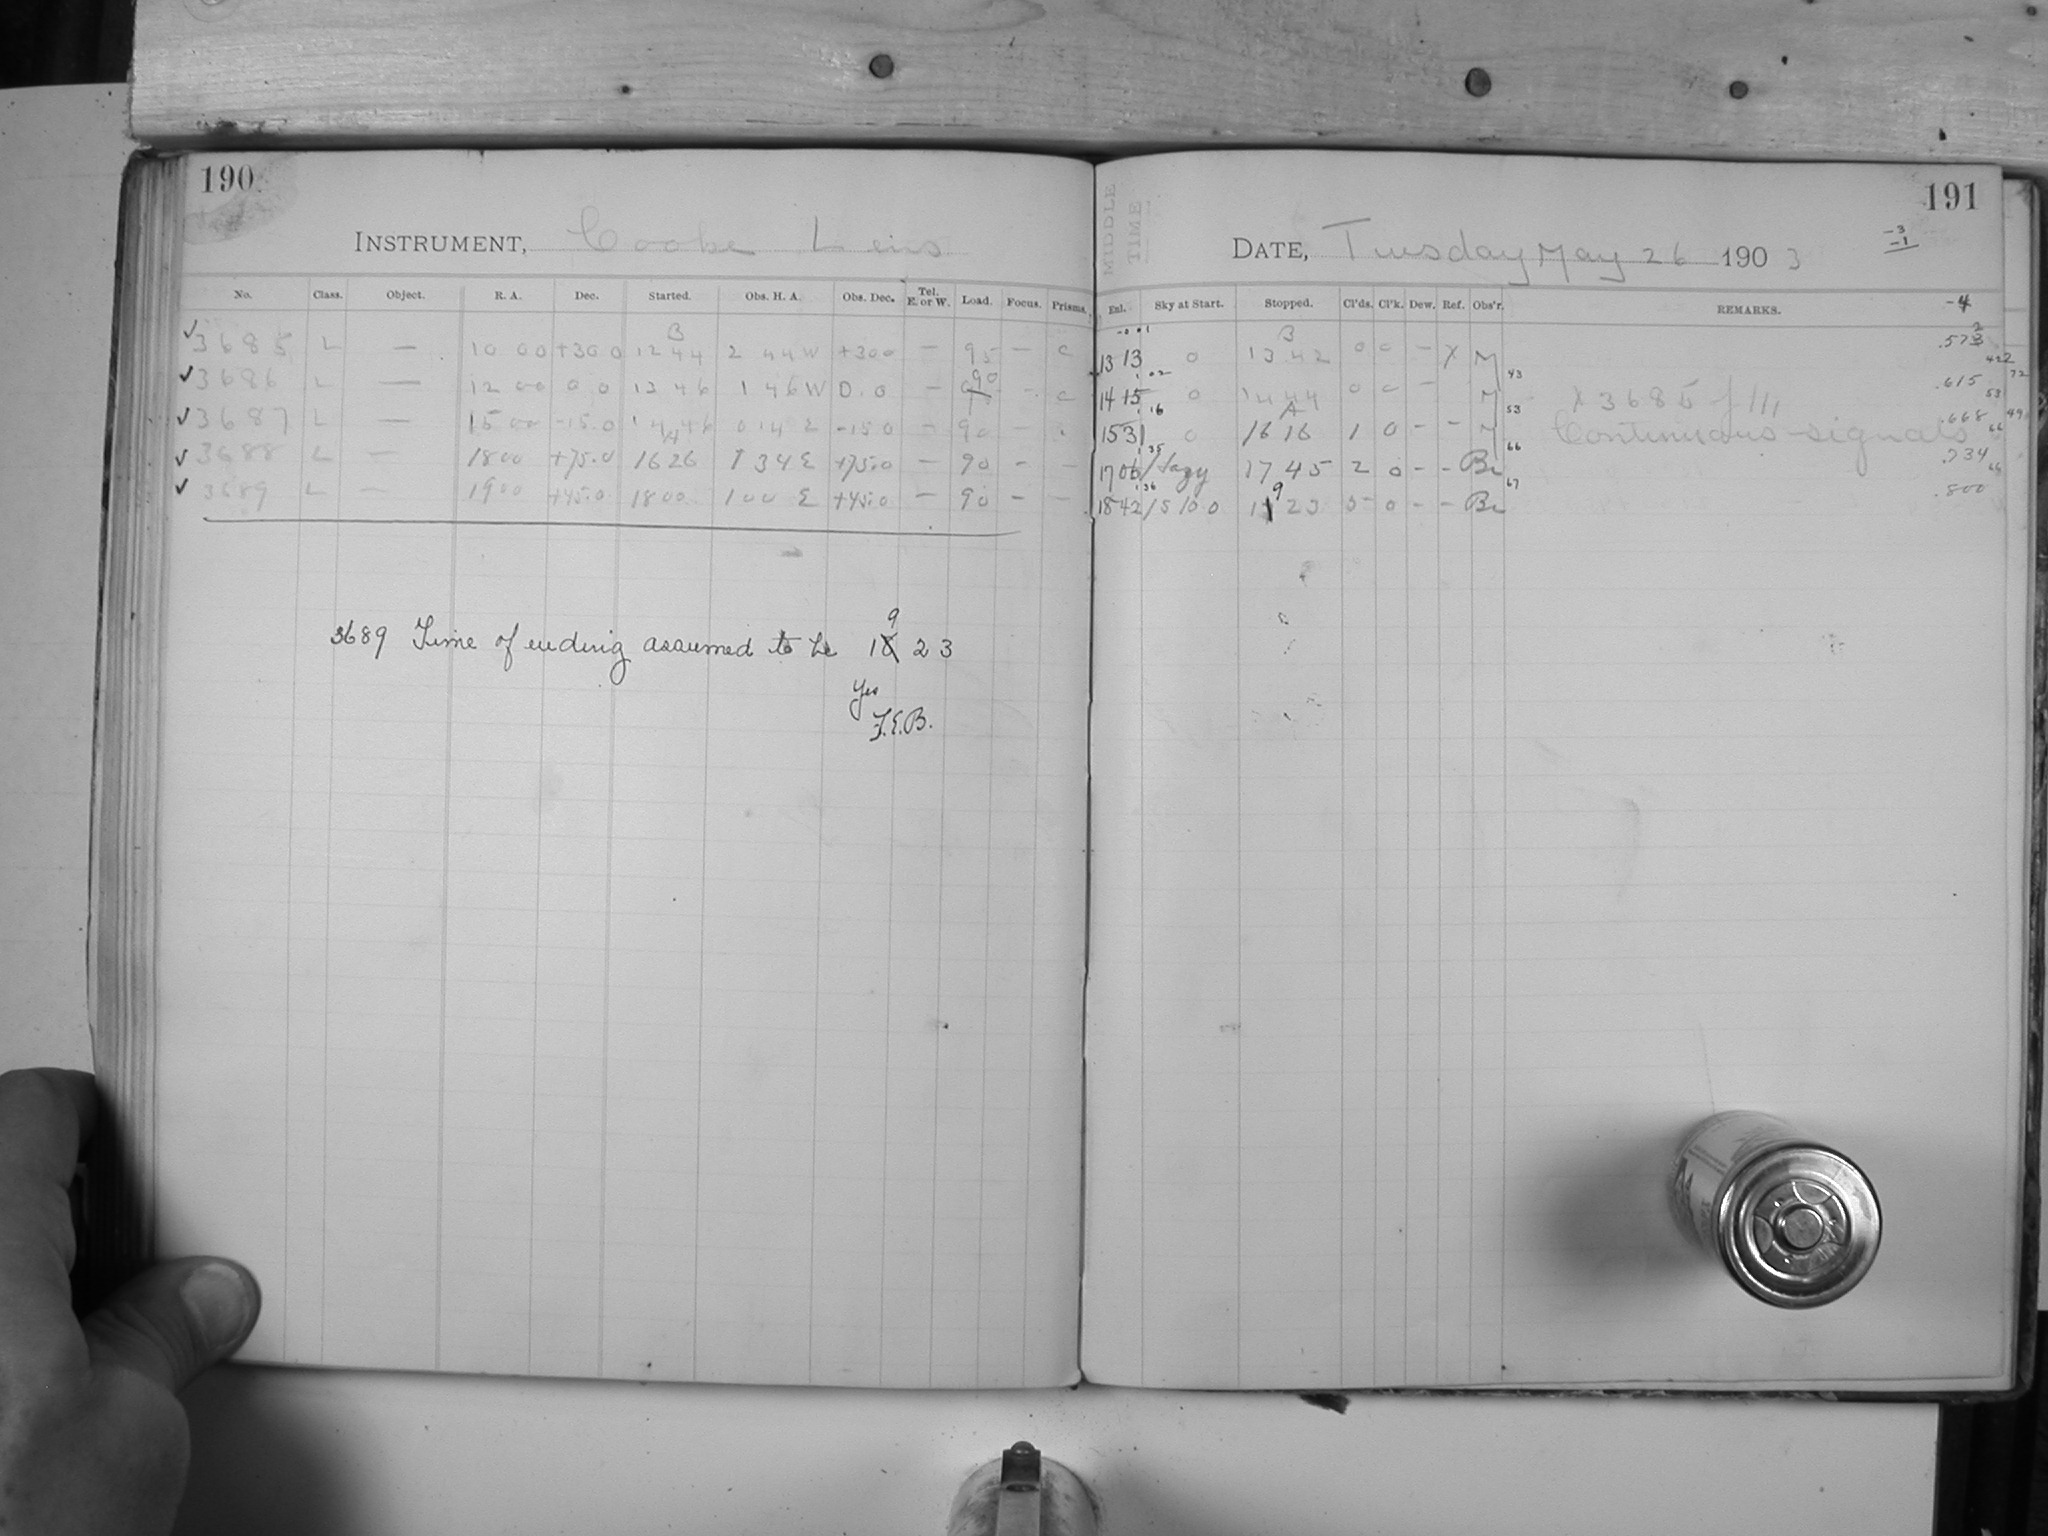 190
INSTRUMENT, Cooke Lens
No. Class. Object. R. A. Dec. Started. Obs. H. A. Obs. Dec. Tel. E. or W. Load. Focus. Prisms.
B
3685 L — 10 00 +30 0 12 44 2 44 W +30 0 — 95 — 0
90
3686 L — 12 00 0 0 13 46 1 46 W 0.0 —
3687 L — 15 00 -15.0 14 46 0 14 E -15 0 — 90 —
A
3688 L — 18 00 +75.0 16 26 1 34 E +75.0 — 90 — —
3689 L — 19 00 +45.0 18 00 1 00 E +45.0 — 90 — —
9
3689 Time of ending assumed to be 18 23
Yes
F.E.B.
191
MIDDLE
TIME
DATE, Tuesday May 26 1903
-3
-1
-4
Enl. Sky at Start. Stopped. Cl'ds. Cl'k. Dew. Ref. Obs'r. REMARKS.
B
13 13 0 13 42 0 0 — X M .573
43
14 15 0 14 44 0 0 — M X 3685 f 111 .615
53
A
15 31 0 16 16 1 0 - - M Continuous signals .668
66
17 06 / Hazy 17 45 2 0 - - Br .734
67
9
18 42 / 5 / 0 0 23 5 0 - - Br .800